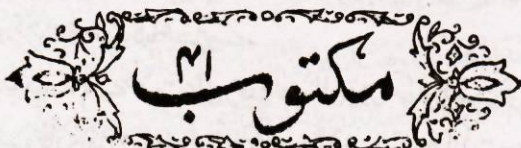 مکتوب ۳۱